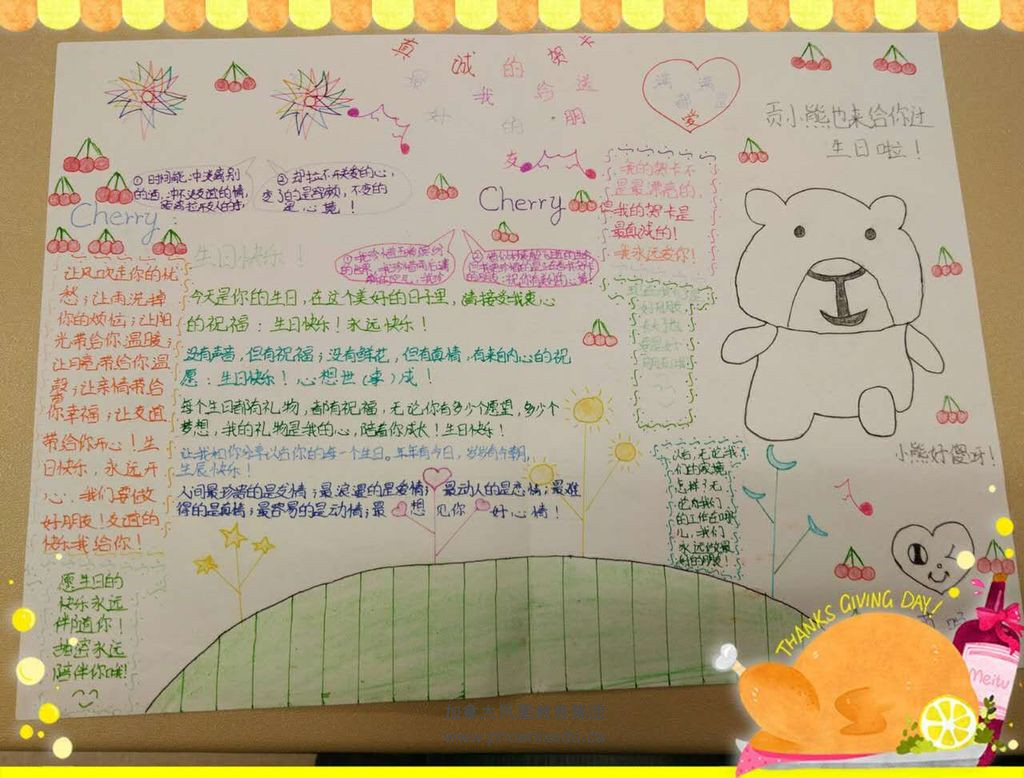 真诚的贺卡
我给送
好的朋
友
满满
都是
爱
贡小熊也来给你过
生日啦！
①时间能冲淡离别
的酒，冲不淡友谊的情，
②却拉不开友爱的心，
变了的是容颜，不变的
是心境！
Cherry
Cherry
我的贺卡不
是最漂亮的，
但我的贺卡是
最真诚的！
我永远爱你！
生日快乐！
让风吹走你的忧
愁；让雨洗掉
你的烦恼；让阳
光带给你温暖；
让月亮带给你温
馨；让亲情带给
你幸福；让友谊
带给你开心！生
日快乐，永远开
心，我们要做
好朋友！友谊的
快乐我给你！
今天是你的生日，在这个美好的日子里，请接受我衷心
的祝福：生日快乐！永远快乐！
没有声音，但有祝福；没有鲜花，但有真情，有来自内心的祝
愿：生日快乐！心想世（事）成！
每个生日都有礼物，都有祝福，无论你有多少个愿望，多少个
梦想，我的礼物是我的心，陪着你成长！生日快乐！
让我和你分享以后你的每一个生日。年年有今日，岁岁有今朝，
生辰快乐！
人间最珍贵的是友情；最浪漫的是爱情；最动人的是恋情；最难
得的是真情；最容易的是动情；最想见你好心情！
以后，无论我
们的家境
怎样？无
论我们
的工作在哪
儿，我们
永远做最
好的朋友！
小熊好傻呀！
愿生日的
快乐永远
伴随你！
甜蜜永远
陪伴你哦！
THANKS GIVING DAY!
Meitu